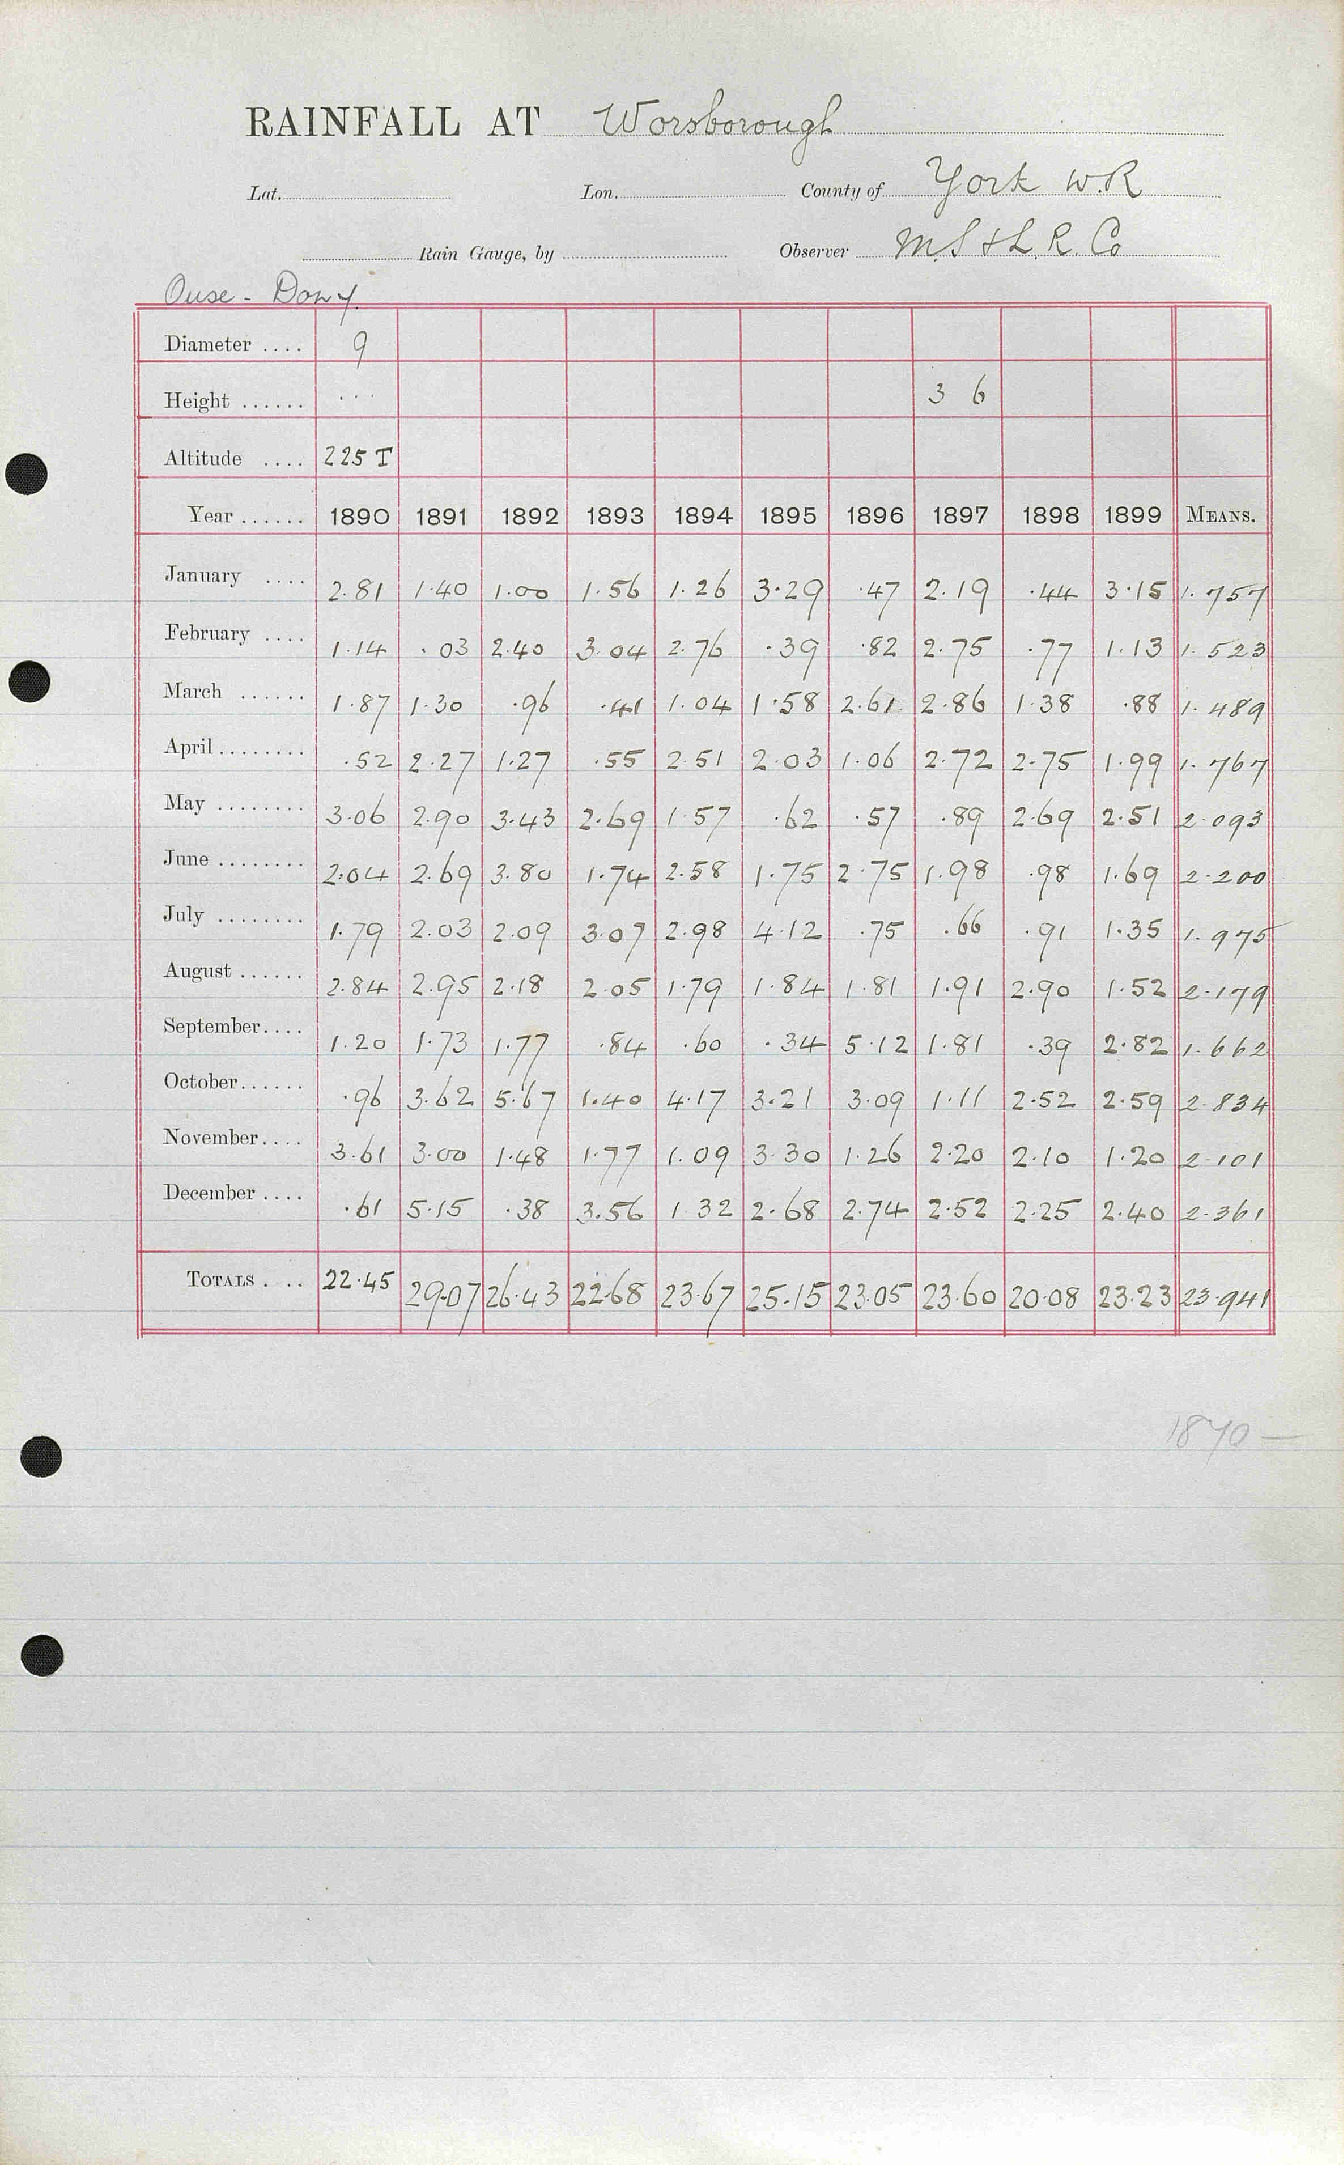 RAINFALL AT Worsborough
Lat. Lon. County of York W.R
Rain Gauge, by Observer M.S & L. R. Co
Ouse - Don
Diameter .... 9
Height ...... ... 3 6
Altitude .... 225 T
Year ...... 1890 1891 1892 1893 1894 1895 1896 1897 1898 1899 MEANS.
January .... 2.81 1.40 1.00 1.56 1.26 3.29 .47 2.19 .44 3.15 1.757
February .... 1.14 .03 2.40 3.04 2.76 .39 .82 2.75 .77 1.13 1.523
March ...... 1.87 1.30 .96 .41 1.04 1.58 2.61 2.86 1.38 .88 1.489
April ........ .52 2.27 1.27 .55 2.51 2.03 1.06 2.72 2.75 1.99 1.767
May ........ 3.06 2.90 3.43 2.69 1.57 .62 .57 .89 2.69 2.51 2.093
June ........ 2.04 2.69 3.80 1.74 2.58 1.75 2.75 1.98 .98 1.69 2.200
July ........ 1.79 2.03 2.09 3.07 2.98 4.12 .75 .66 .91 1.35 1.975
August ...... 2.84 2.95 2.18 2.05 1.79 1.84 1.81 1.91 2.90 1.52 2.179
September.... 1.20 1.73 1.77 .84 .60 .34 5.12 1.81 .39 2.82 1.662
October...... .96 3.62 5.67 1.40 4.17 3.21 3.09 1.11 2.52 2.59 2.834
November.... 3.61 3.00 1.48 1.77 1.09 3.30 1.26 2.20 2.10 1.20 2.101
December .... .61 5.15 .38 3.56 1.32 2.68 2.74 2.52 2.25 2.40 2.361
TOTALS . .. 22.45 29.07 26.43 22.68 23.67 25.15 23.05 23.60 20.08 23.23 23.941
1870 —